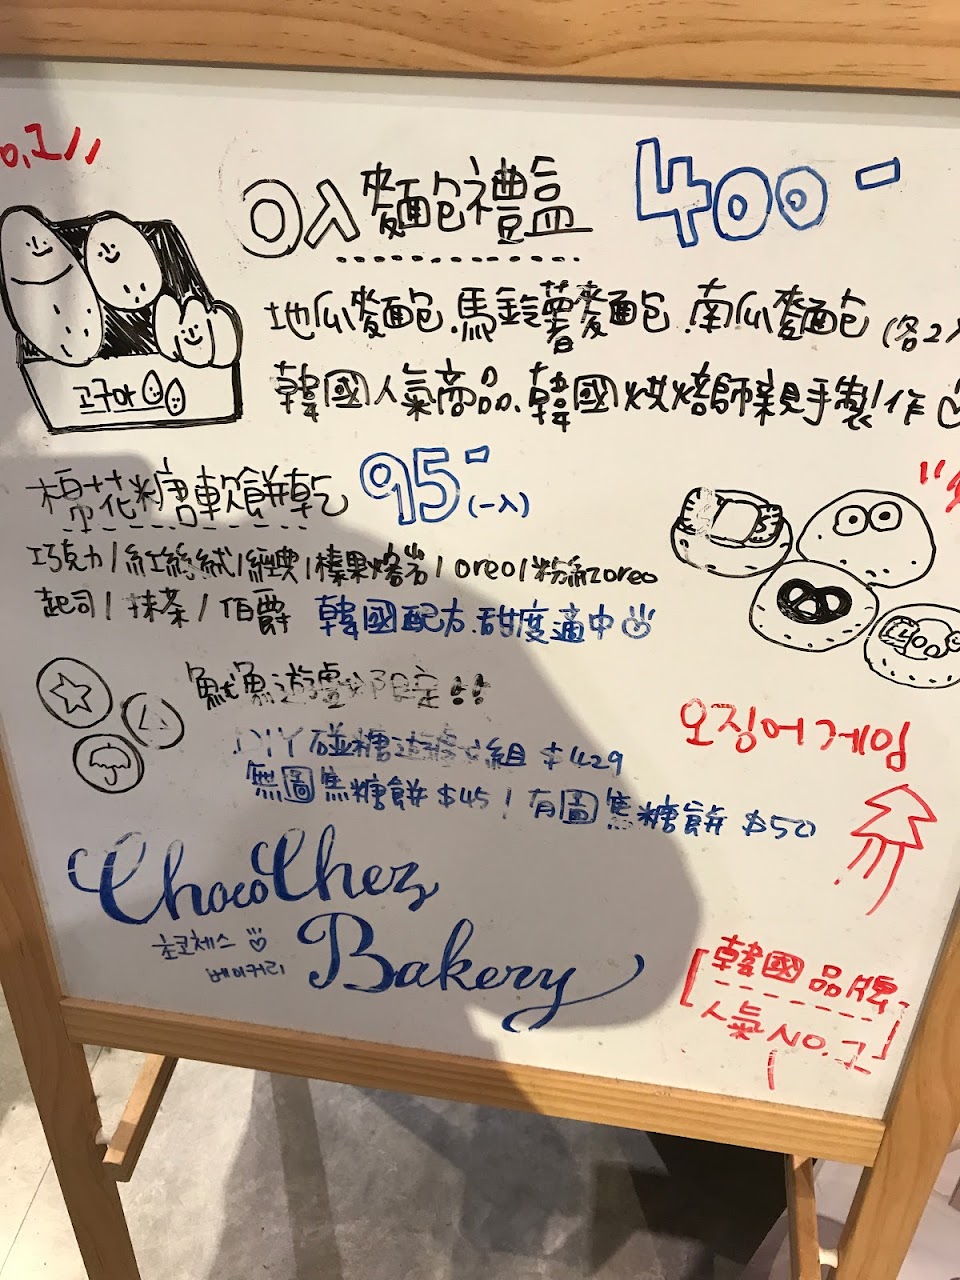 o.1!!
0入麵包禮盒 400-
地瓜麵包.馬鈴薯麵包.南瓜麵包(各2入
韓國人氣商品.韓國烘焙師親手製作
고구마
棉花糖軟餅乾 95-(一入)
巧克力/紅絲絨/經典/榛果熔岩/oreo/粉紅oreo
起司/抹茶/伯爵 韓國配方.甜度適中
魷魚遊戲 限定!!
오징어게임
DIY碰糖遊戲組 $429
無圖焦糖餅$45/有圖焦糖餅 $50
ChocoChez
초코체스
베이커리
Bakery
[韓國品牌
人氣NO.1]